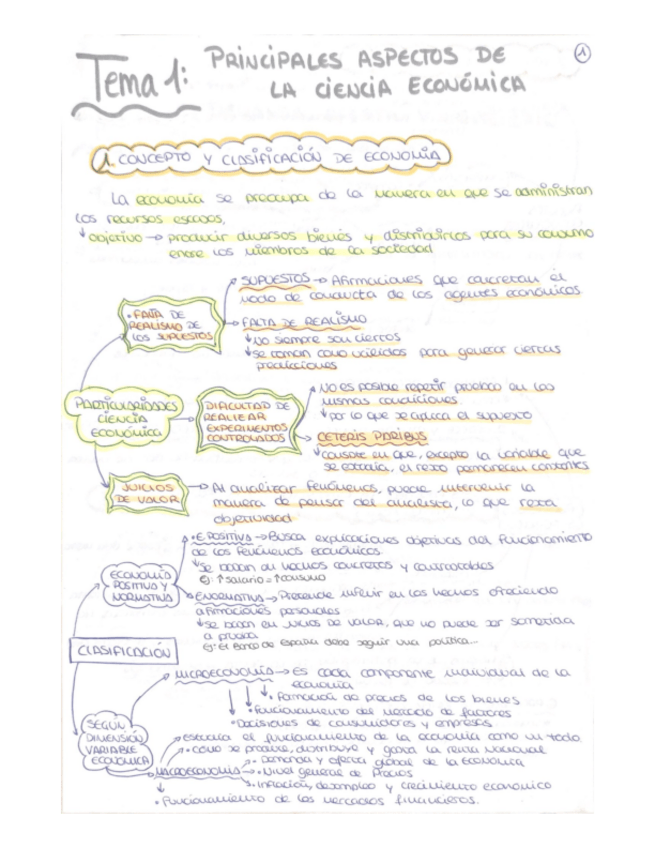 Tema 1: PRINCIPALES ASPECTOS DE
LA CIENCIA ECONÓMICA
1
1. CONCEPTO Y CLASIFICACIÓN DE ECONOMÍA
La economía se preocupa de la manera en que se administran
los recursos escasos,
objetivo → producir diversos bienes y distribuirlos para su consumo
entre los miembros de la sociedad
PARTICULARIDADES
CIENCIA
ECONÓMICA
• FALTA DE
REALISMO DE
LOS SUPUESTOS
SUPUESTOS → Afirmaciones que concretan el
modo de conducta de los agentes económicos
FALTA DE REALISMO
No siempre son ciertos
se toman como válidos para generar ciertas
predicciones
DIFICULTAD DE
REALIZAR
EXPERIMENTOS
CONTROLADOS
No es posible repetir pruebas en las
mismas condiciones
por lo que se aplica el supuesto
CETERIS PARIBUS
consiste en que, excepto la variable que
se estudia, el resto permanecen constantes
JUICIOS
DE VALOR
→ Al analizar fenómenos, puede intervenir la
manera de pensar del analista, lo que resta
objetividad
CLASIFICACIÓN
ECONOMÍA
POSITIVA Y
NORMATIVA
• E. POSITIVA → Busca explicaciones objetivas del funcionamiento
de los fenómenos económicos.
se basan en hechos concretos y contrastables
Ej: ↑ salario = ↑ consumo
E. NORMATIVA → Pretende influir en los hechos ofreciendo
afirmaciones personales
se basan en juicios de valor, que no puede ser sometida
a prueba
Ej: El Banco de España debe seguir una política...
SEGÚN
DIMENSIÓN
VARIABLE
ECONÓMICA
MICROECONOMÍA → Es cada componente individual de la
economía
• Formación de precios de los bienes
• Funcionamiento del mercado de factores
• Decisiones de consumidores y empresas
MACROECONOMÍA
estudia el funcionamiento de la economía como un todo.
• Cómo se produce, distribuye y gasta la renta nacional
• Demanda y oferta global de la Economía
• Nivel general de Precios
• Inflación, desempleo y crecimiento económico
• Funcionamiento de los mercados financieros.